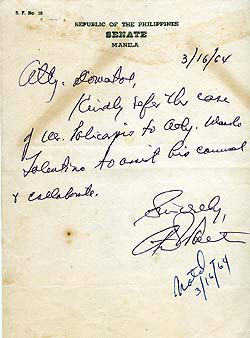 S. F. No. 10
REPUBLIC OF THE PHILIPPINES
SENATE
MANILA
3/16/64
Atty.
Kindly refer the case
of Mr. Policarpio to Atty.
Tolentino to assist his counsel
& collaborate.
Sincerely,
Noted
3/16/64